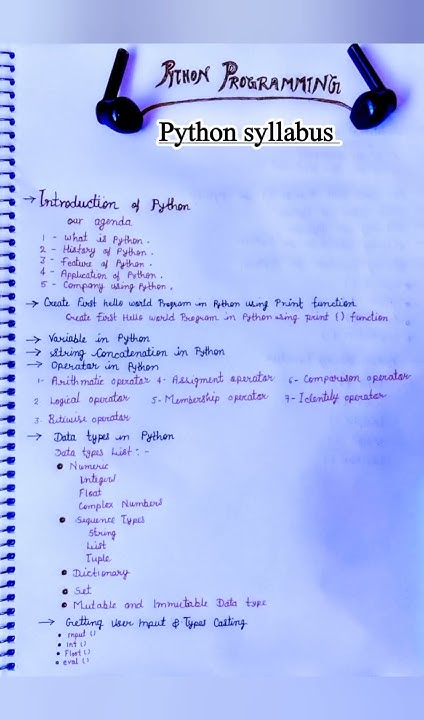 PYTHON PROGRAMMING
Python syllabus
→ Introduction of Python
our agenda
1 - What is Python.
2 - History of Python.
3 - Feature of Python.
4 - Application of Python.
5 - Company using Python.
→ Create First hello world Program in Python using Print function
Create First Hello world Program in Python using print () function
→ Variable in Python
→ String Concatenation in Python
→ Operator in Python
1- Arithmatic operator 4- Assigment operator 6- Comparison operator
2 Logical operator 5- Membership operator 7- Identity operator
3. Bitiwise operator
→ Data types in Python
Data types List :-
• Numeric
Integer
Float
Complex Numbers
• Sequence Types
String
List
Tuple
• Dictionary
• Set
• Mutable and Immutable Data type
→ Getting User Input & Types Casting
• input ()
• int ()
• Float ()
• eval ()